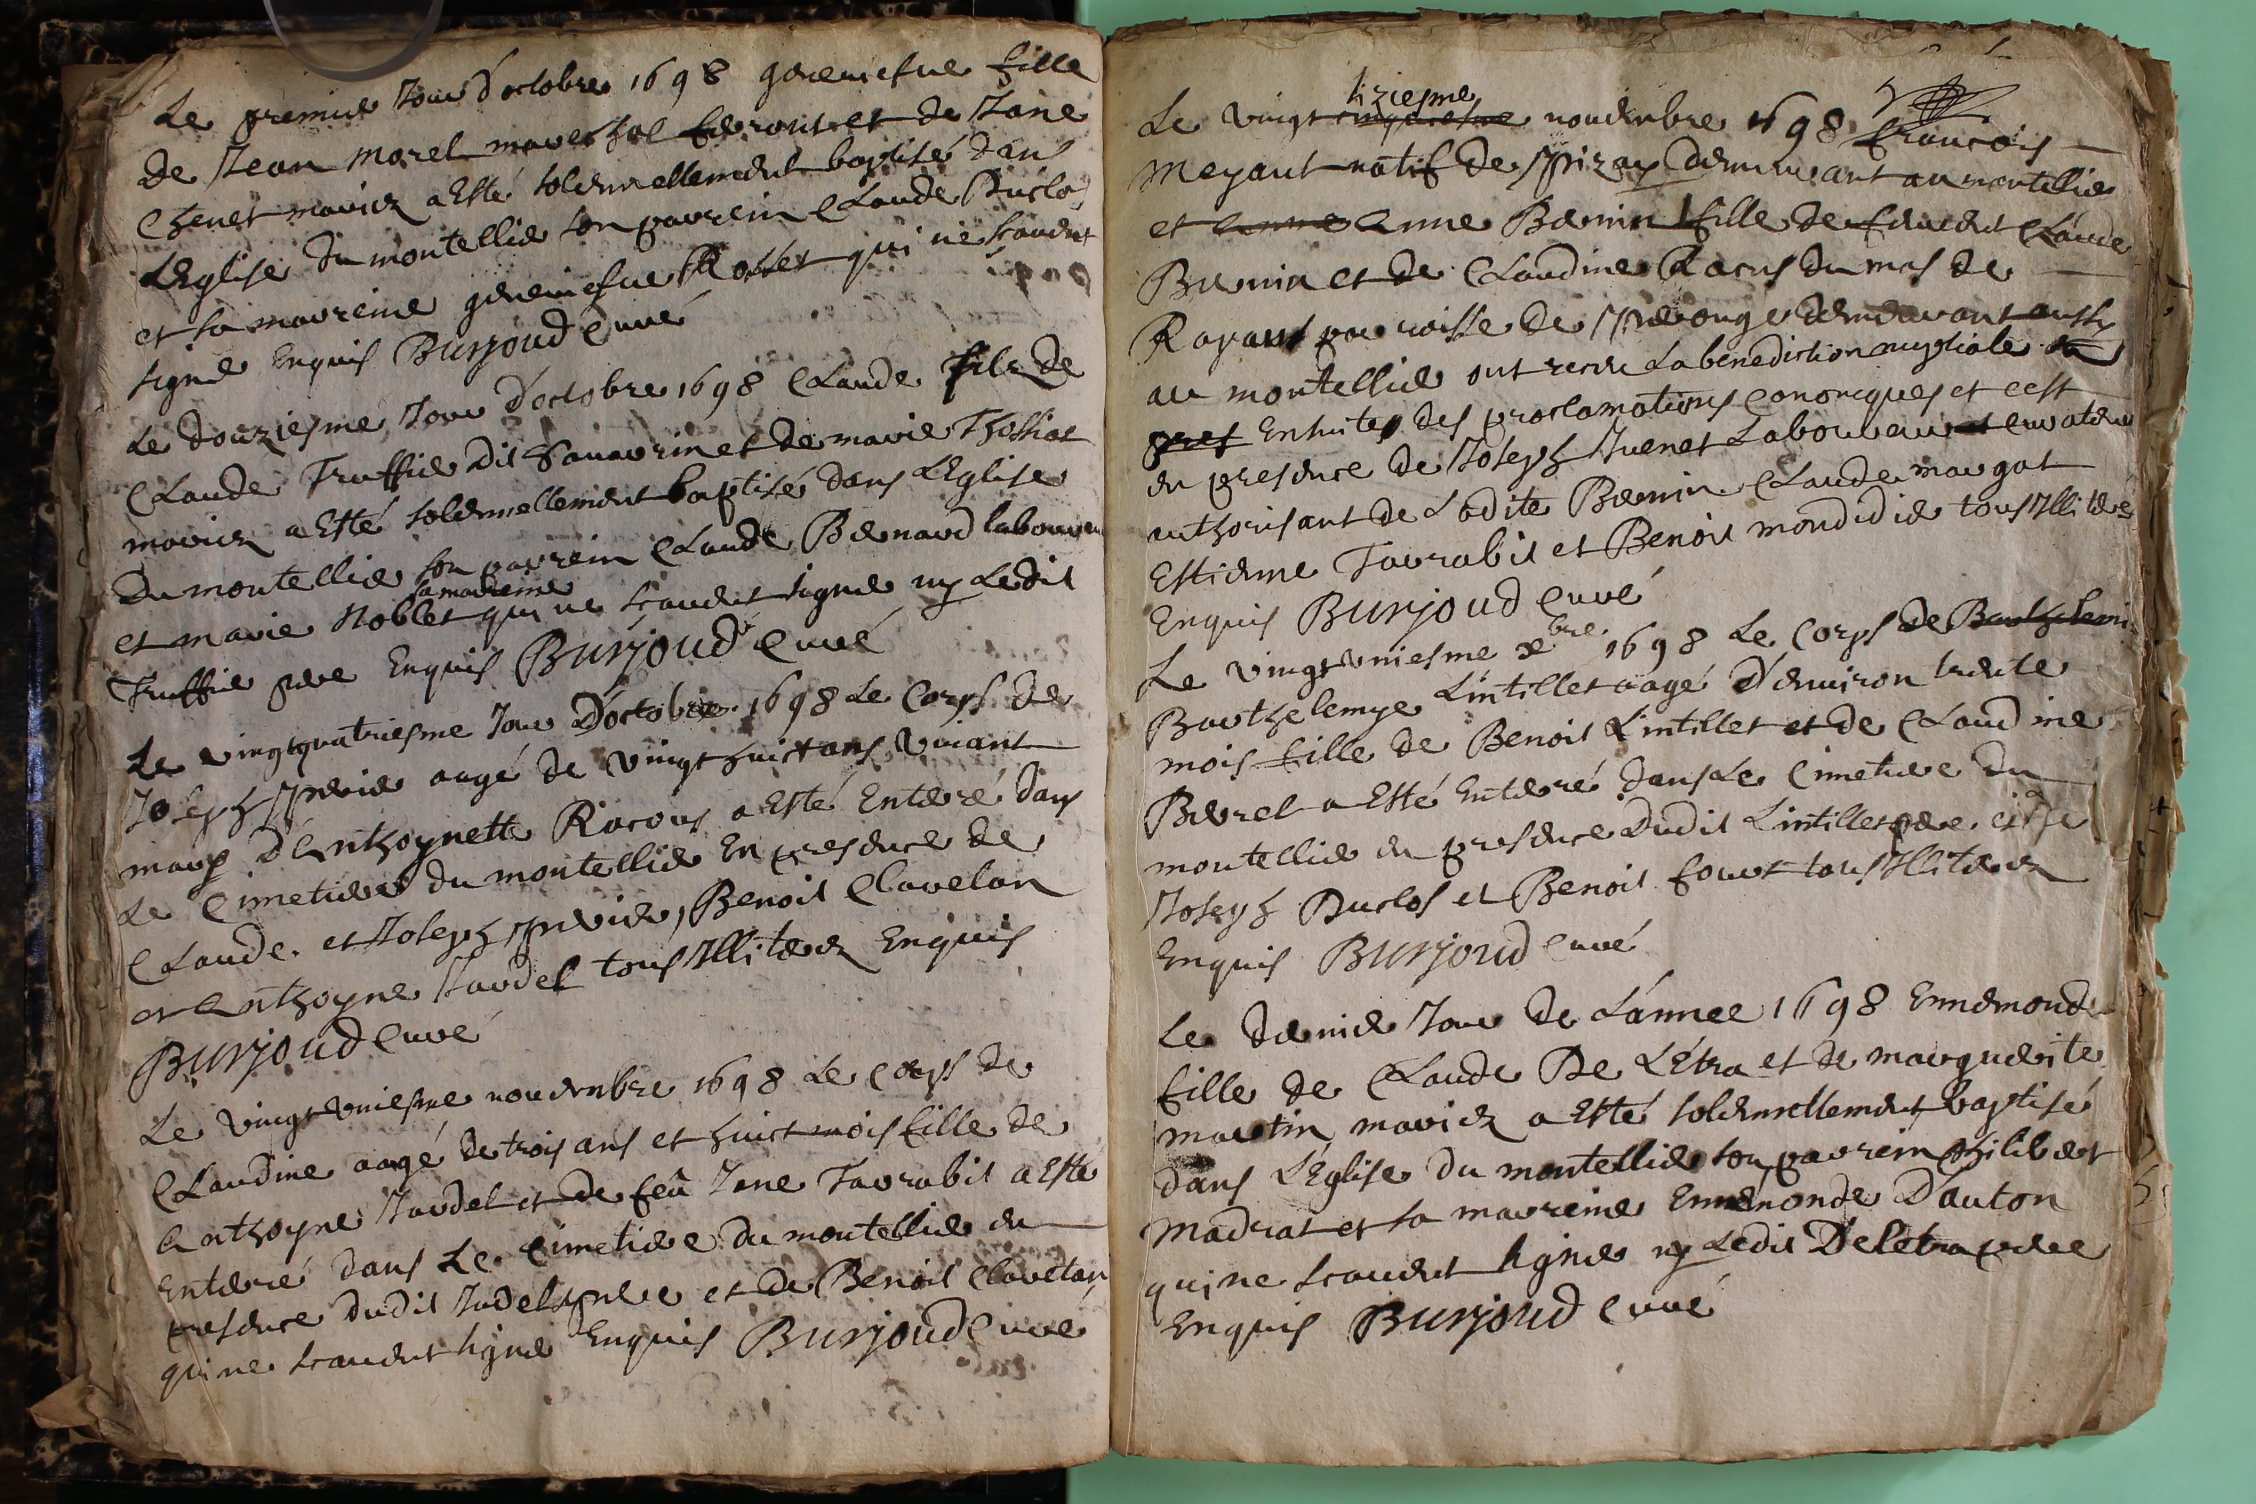 Le premier Jour d'octobre 1698 geneviefve fille
de Jean morel mareschal ferront et de Jane
Chenet mariez a Esté solennellement baptisé dans
L'Eglise du montellier son parrein Claude Duclos
et sa marreine geneviefve Rosset qui ne scavent
signer Enquis Burjoud Curé
Le douziesme Jour d'octobre 1698 Claude fils de
Claude Truffier dit Sauarin et de marie Thossiat
mariez a Esté solennellement baptisé dans L'Eglise
du montellier son parrein Claude Bernard laboureur
sa marreine
et marie Noblet qui ne scavent signer ny Ledit
Truffier pere Enquis Burjoud Curé
Le vingtquatriesme Jour D'octobre 1698 Le Corps de
Joseph aagé de vingt huict ans vivant
mary d'Enthoynette Racous a Esté Enterré dans
Le Cimetiere du montellier En presence de
Claude et Joseph Benoit Clavelan
et Anthoyne Jardel tous Illiterez Enquis
Burjoud Curé
Le vingt uniesme novembre 1698 Le Corps de
Claudine aagé de trois ans et huict mois fille de
Anthoyne Jardel et de feu Jane Tarrabit a Esté
Enterré dans Le Cimetiere du montellier en
presence dudit Jardel pere et de Benoit Clavelan
qui ne scavent signer Enquis Burjoud Curé
siziesme
Le vingt cinquiesme novembre 1698 francois
Meyant natif de Pizay demeurant au montellier
et Anne Anne Bernin fille de Claude
Bernin et de Claudine Racus du mas de
Rapans parroisse de Perouge demeurant aussy
au montellier ont receu La benediction nuptiale
Ensuite des proclamations Canonicques et c'est
en presence de Joseph Juenet Laboureur curateur
authorisant de Ladite Bernin Claude margat
Estienne Tarrabit et Benoit mondidier tous Illiterés
Enquis Burjoud Curé
Le vingt uniesme xbre 1698 Le Corps de Barthelemie
Barthelemye Lintillet aagé D'environ trente
mois fille de Benoit Lintillet et de Claudine
Burret a Esté Enterré dans Le Cimetiere du
montellier en presence dudit Lintillet pere, et de
Joseph Duclos et Benoit fourt tous Illiterez
Enquis Burjoud Curé
Le dernier Jour de L'année 1698 Ennemonde
fille de Claude De Létra et de marguerite
martin mariez a Esté solennellement baptisé
dans L'Eglise du montellier son parrein Philibert
Madrat et sa marreine Ennemonde D'auton
qui ne scavent signer ny Ledit Deletra pere
Enquis Burjoud Curé